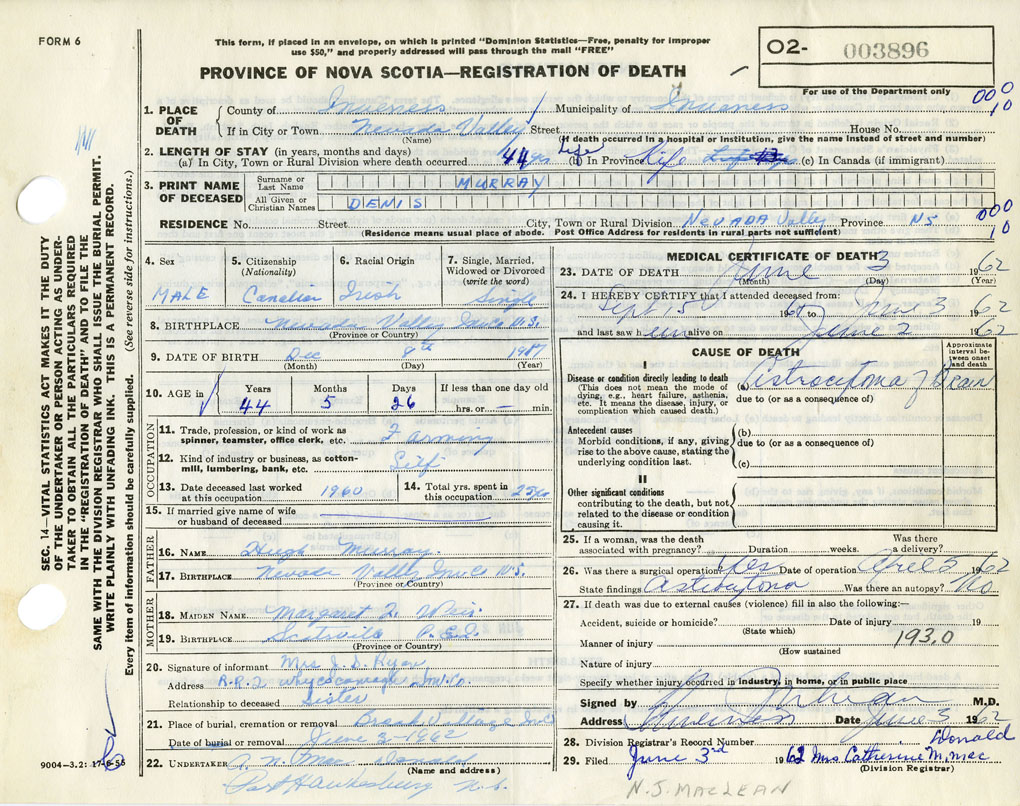 FORM 6
This form, if placed in an envelope, on which is printed "Dominion Statistics—Free, penalty for improper
use $50," and properly addressed will pass through the mail "FREE"
O2- 003896
For use of the Department only
PROVINCE OF NOVA SCOTIA—REGISTRATION OF DEATH
000
10
1. PLACE OF DEATH
County of Inverness Municipality of Inverness
If in City or Town Nevada Valley Street House No.
(Name) (If death occurred in a hospital or institution, give the name instead of street and number)
2. LENGTH OF STAY (in years, months and days)
(a) In City, Town or Rural Division where death occurred 44 yrs (b) In Province Life (c) In Canada (if immigrant)
3. PRINT NAME OF DECEASED
Surname or Last Name MURRAY
All Given or Christian Names DENIS
000
10
RESIDENCE No. Street City, Town or Rural Division NEVADA Valley Province NS
(Residence means usual place of abode. Post Office Address for residents in rural parts not sufficient)
4. Sex
MALE
5. Citizenship
(Nationality)
6. Racial Origin
Irish
7. Single, Married,
Widowed or Divorced
(write the word)
Single
8. BIRTHPLACE Nevada Valley N.S.
(Province or Country)
9. DATE OF BIRTH Dec 8th
(Month) (Day) (Year)
10. AGE in
Years Months Days If less than one day old
44 5 26 hrs. or — min.
OCCUPATION
11. Trade, profession, or kind of work as
spinner, teamster, office clerk, etc. Farming
12. Kind of industry or business, as cotton-
mill, lumbering, bank, etc. Self
13. Date deceased last worked
at this occupation 1960
14. Total yrs. spent in
this occupation 25
15. If married give name of wife
or husband of deceased
FATHER
16. NAME Hugh Murray
17. BIRTHPLACE Nevada Valley N.S.
(Province or Country)
MOTHER
18. MAIDEN NAME Margaret
19. BIRTHPLACE P.E.I.
(Province or Country)
20. Signature of informant Mrs J. D. Ryan
Address R.R.2 Whycocomagh
Relationship to deceased Sister
21. Place of burial, cremation or removal Brook Village
Date of burial or removal June 1962
22. UNDERTAKER
(Name and address)
Port Hawkesbury N.S.
MEDICAL CERTIFICATE OF DEATH
23. DATE OF DEATH June 3 1962
(Month) (Day) (Year)
24. I HEREBY CERTIFY that I attended deceased from:
Sept 15 19 to June 3 1962
and last saw him alive on June 2 1962
CAUSE OF DEATH
Approximate
interval be-
tween onset
and death
I
Disease or condition directly leading to death
(This does not mean the mode of
dying, e.g., heart failure, asthenia,
etc. It means the disease, injury, or
complication which caused death.)
(a) Astrocytoma of Brain
due to (or as a consequence of)
Antecedent causes
Morbid conditions, if any, giving
rise to the above cause, stating the
underlying condition last.
(b)
due to (or as a consequence of)
(c)
II
Other significant conditions
contributing to the death, but not
related to the disease or condition
causing it.
25. If a woman, was the death
associated with pregnancy? Duration weeks. Was there
a delivery?
26. Was there a surgical operation? Yes Date of operation April 1962
State findings Was there an autopsy? No
27. If death was due to external causes (violence) fill in also the following:—
Accident, suicide or homicide? Date of injury 19
(State which)
Manner of injury 193.0
(How sustained
Nature of injury
Specify whether injury occurred in industry, in home, or in public place
Signed by M.D.
Address Inverness Date June 3 1962
28. Division Registrar's Record Number
29. Filed June 3rd 1962 Mrs Catherine M. Mac
Donald
(Division Registrar)
N.J. MACLEAN
SEC. 14—VITAL STATISTICS ACT MAKES IT THE DUTY
OF THE UNDERTAKER OR PERSON ACTING AS UNDER-
TAKER TO OBTAIN ALL THE PARTICULARS REQUIRED
IN THE "REGISTRATION OF DEATH" AND TO FILE THE
SAME WITH THE DIVISION REGISTRAR WHO SHALL ISSUE THE BURIAL PERMIT.
WRITE PLAINLY WITH UNFADING INK. THIS IS A PERMANENT RECORD.
Every item of information should be carefully supplied. (See reverse side for instructions.)
9004—3.2: 17-8-55